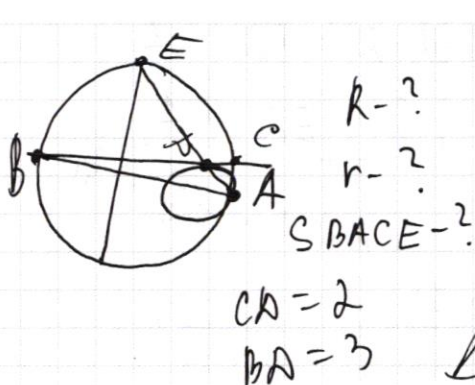 E
B
C
A
R - ?
r - ?
S BACE - ?
CD = 2
BD = 3